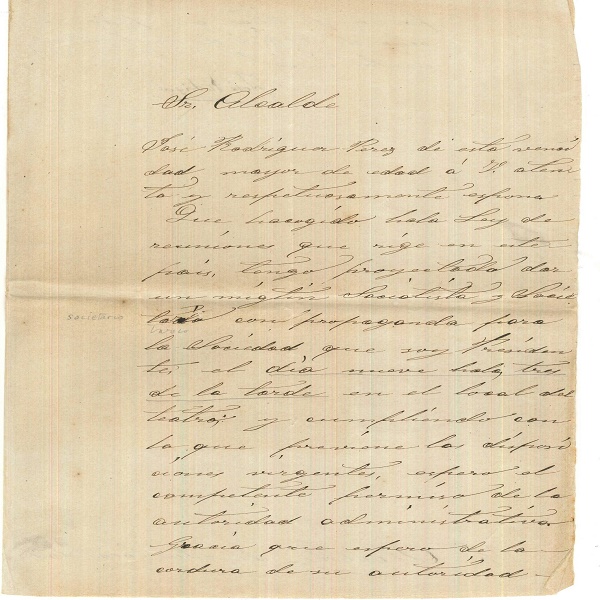 Sr. Alcalde
José Rodrígua Perez di esta vecni
dad mayor de edad á V. aten
ta y respetuosamente espona
Que hacogido hala Ley de
reuniones que ríge en este
país, tengo proyectado dar
un míglin Sociatísta y Socíe
tario con propaganda para
societario
la Sociedad que soy Presíden
te, el día nueve hala, tres
de la tarde en el local del
teatro, y cumpliendo con
lo que previene las disposi
ciónes virgentes, espero el
competente permiso de la
autoridad administratíva
Gracía que espero de la
cordura de su autoridad -